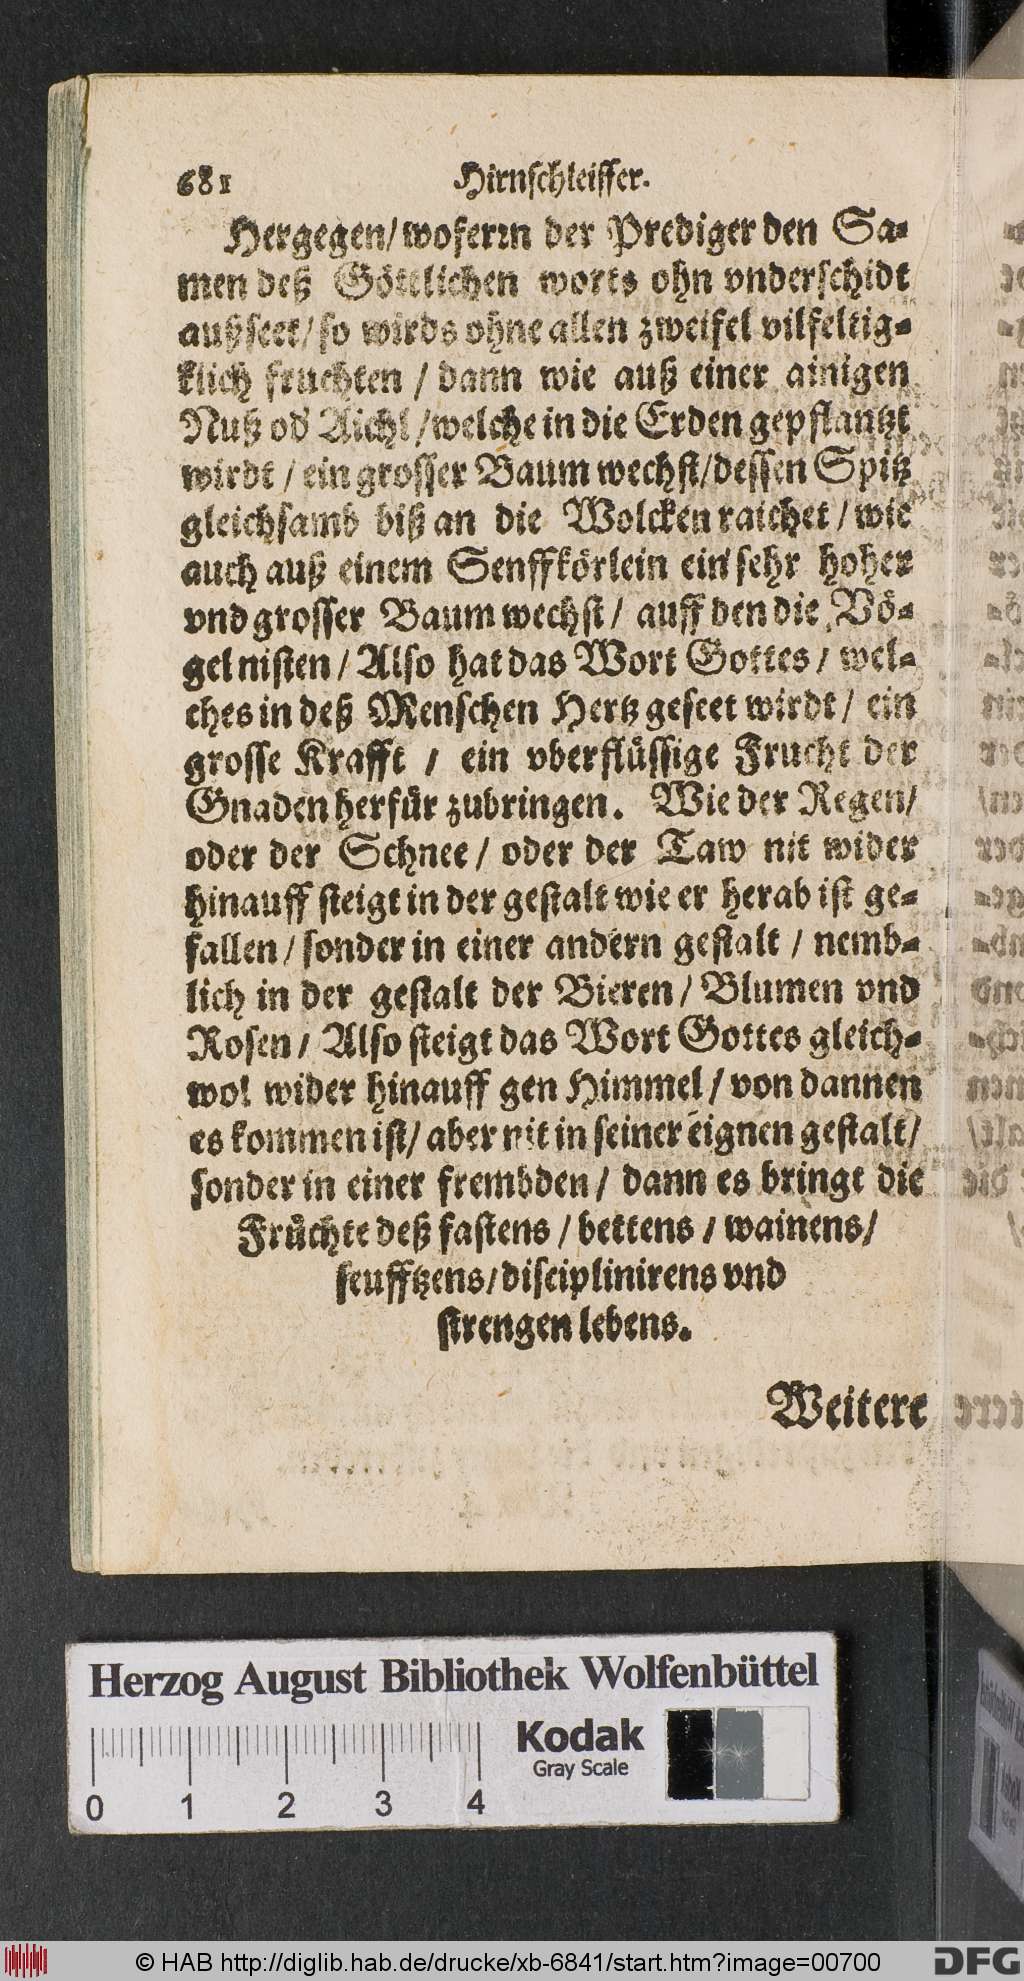 681 Hirnschleiffer.
Hergegen/ woferrn der Prediger den Sa-
men deß Göttlichen worts ohn vnderschidt
außseet/ so wirds ohne allen zweifel vilfeltig-
klich fruchten / dann wie auß einer ainigen
Nuß od' Aichl / welche in die Erden gepflantzt
wirdt / ein grosser Baum wechst/ dessen Spitz
gleichsamb biß an die Wolcken raichet / wie
auch auß einem Senffkörlein ein sehr hoher
vnd grosser Baum wechst / auff den die Vö-
gel nisten / Also hat das Wort Gottes / wel-
ches in deß Menschen Hertz geseet wirdt / ein
grosse Krafft / ein vberflüssige Frucht der
Gnaden herfür zubringen. Wie der Regen/
oder der Schnee / oder der Taw nit wider
hinauff steigt in der gestalt wie er herab ist ge-
fallen / sonder in einer andern gestalt / nemb-
lich in der gestalt der Bieren / Blumen vnd
Rosen / Also steigt das Wort Gottes gleich-
wol wider hinauff gen Himmel / von dannen
es kommen ist/ aber nit in seiner eignen gestalt/
sonder in einer frembden / dann es bringt die
Früchte deß fastens / bettens / wainens/
seufftzens/ disciplinirens vnd
strengen lebens.
Weitere
Herzog August Bibliothek Wolfenbüttel
Kodak
Gray Scale
0 1 2 3 4
© HAB http://diglib.hab.de/drucke/xb-6841/start.htm?image=00700
DFG